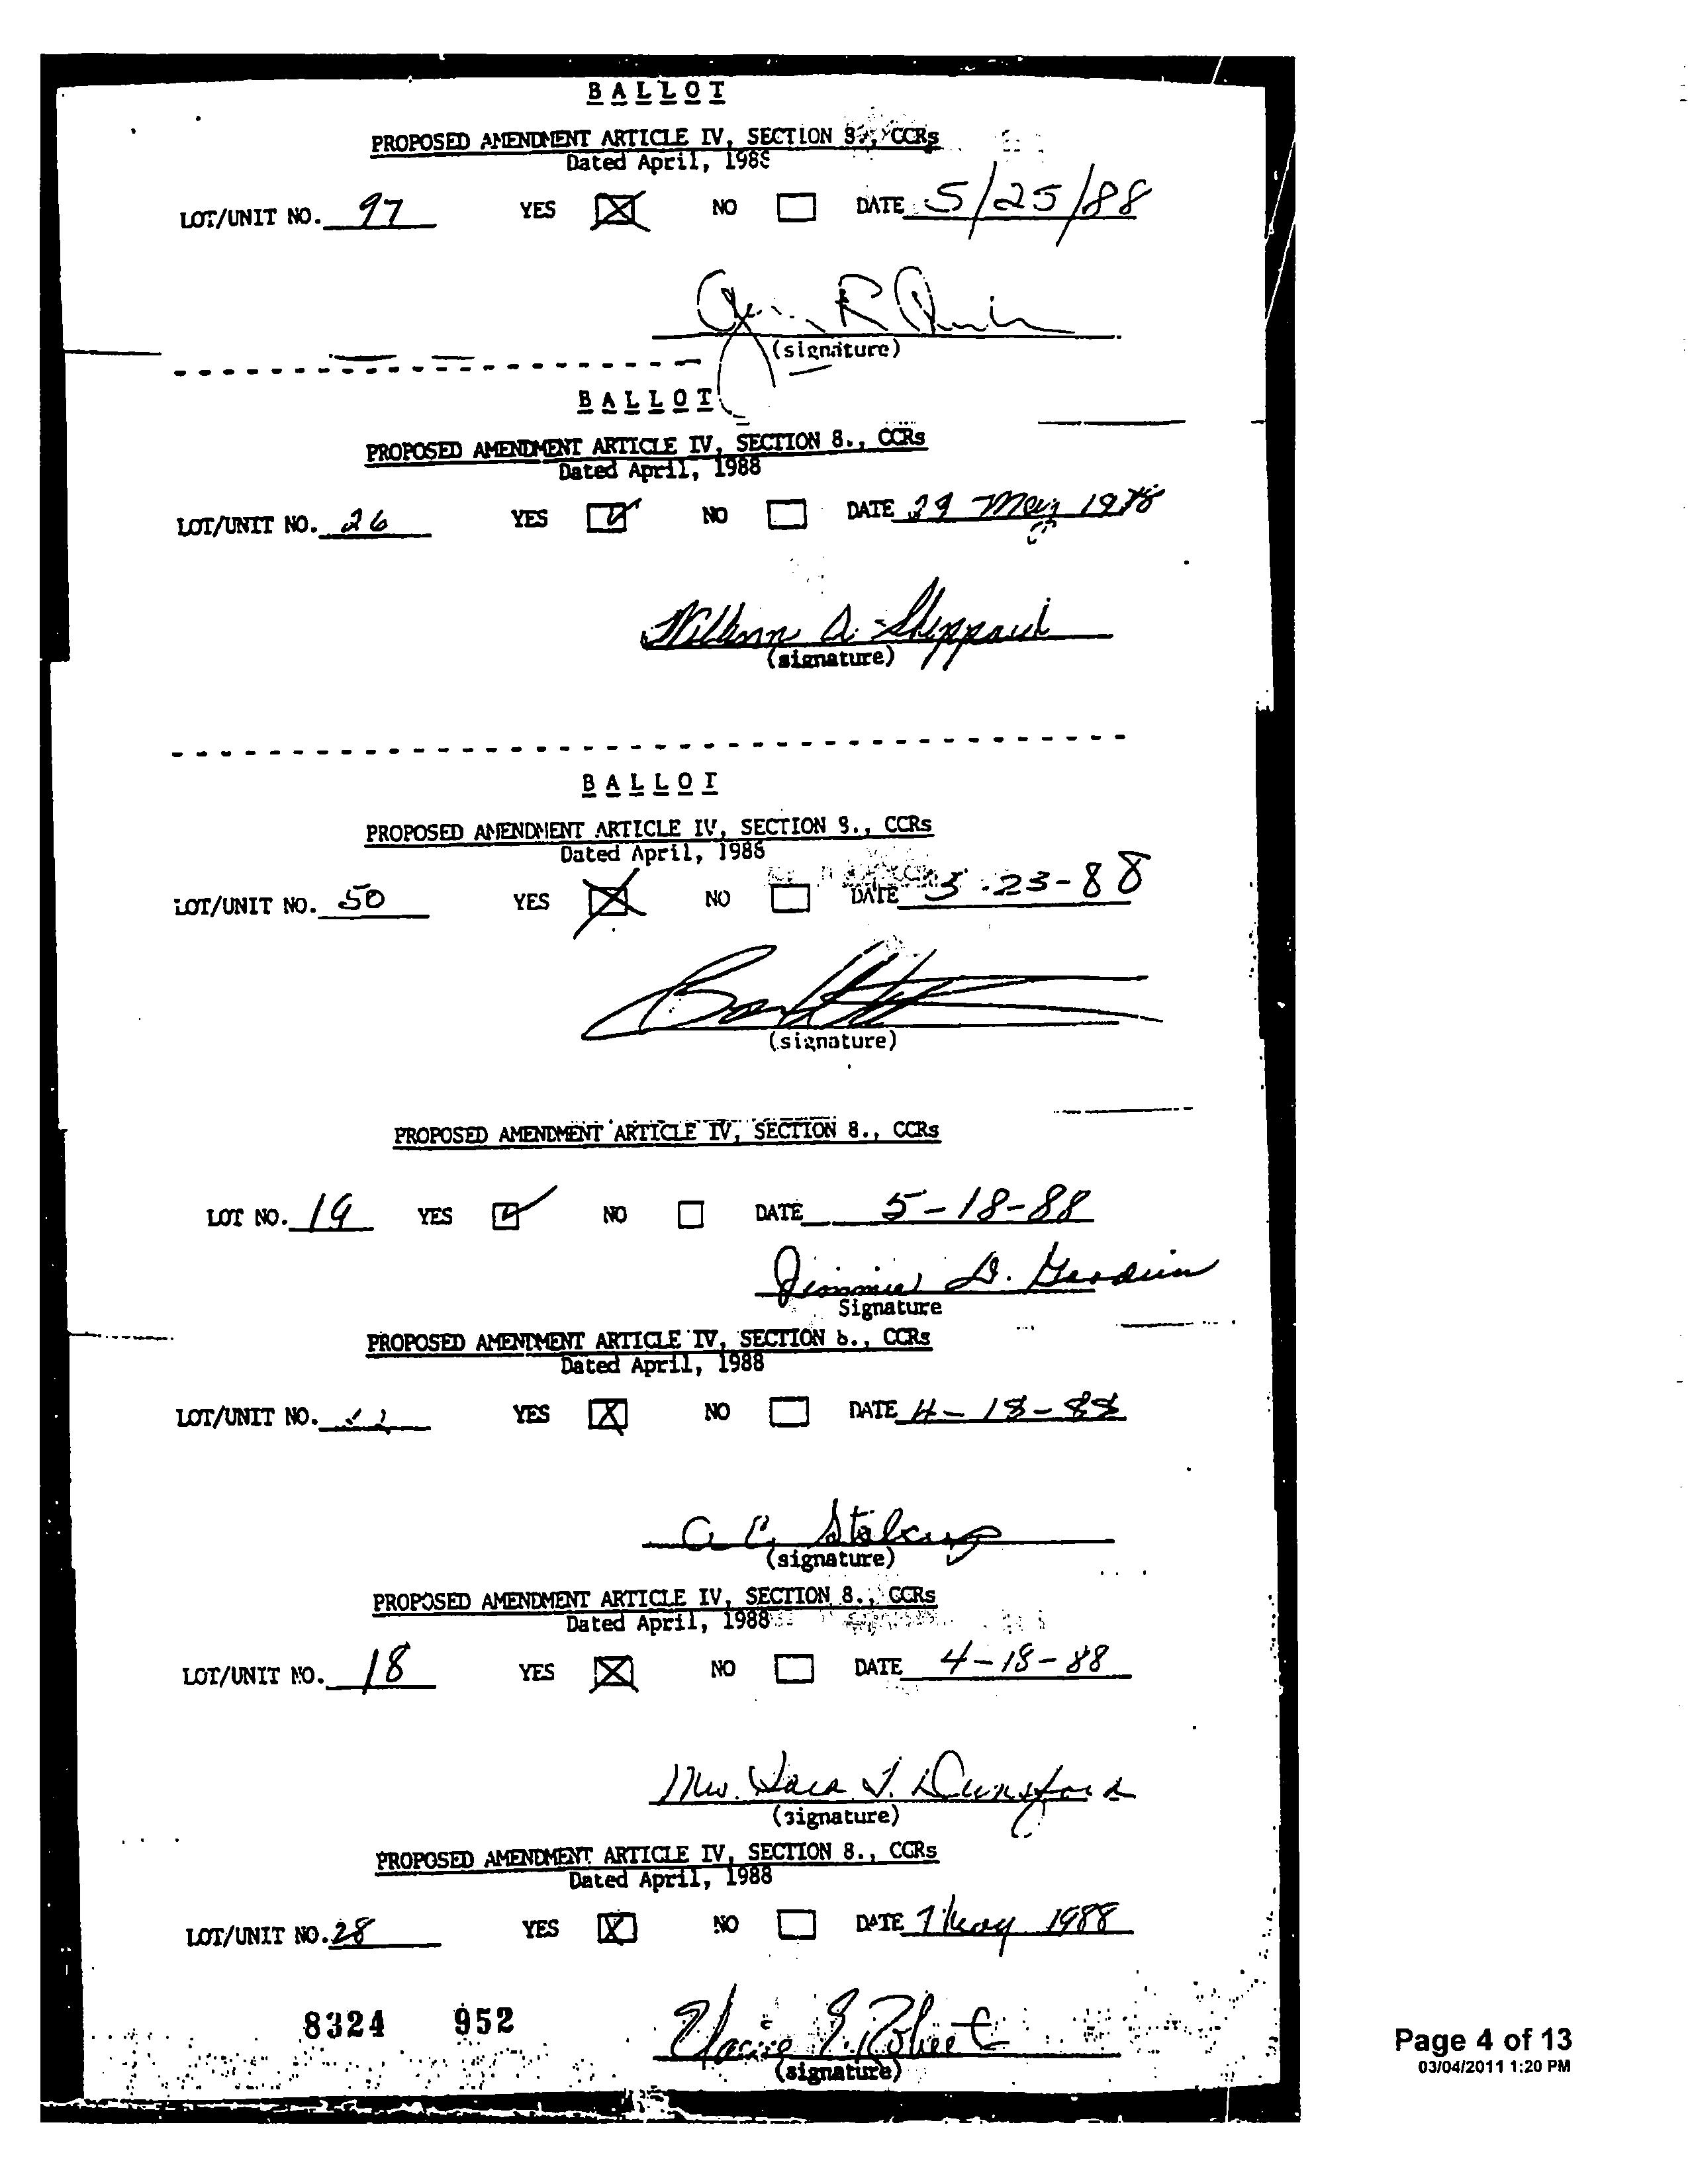 BALLOT
PROPOSED AMENDMENT ARTICLE IV, SECTION 8., CCRs
Dated April, 1988
LOT/UNIT NO. 97 YES NO DATE 5/25/88
(signature)
BALLOT
PROPOSED AMENDMENT ARTICLE IV, SECTION 8., CCRs
Dated April, 1988
LOT/UNIT NO. 26 YES NO DATE 29 May 1988
William A. Sheppard
(signature)
BALLOT
PROPOSED AMENDMENT ARTICLE IV, SECTION 8., CCRs
Dated April, 1988
LOT/UNIT NO. 50 YES NO DATE 5-23-88
(signature)
PROPOSED AMENDMENT ARTICLE IV, SECTION 8., CCRs
LOT NO. 19 YES NO DATE 5-18-88
Jimmie D.
Signature
PROPOSED AMENDMENT ARTICLE IV, SECTION 8., CCRs
Dated April, 1988
LOT/UNIT NO. YES NO DATE 4-18-88
A C Stalcup
(signature)
PROPOSED AMENDMENT ARTICLE IV, SECTION 8., CCRs
Dated April, 1988
LOT/UNIT NO. 18 YES NO DATE 4-18-88
(signature)
PROPOSED AMENDMENT ARTICLE IV, SECTION 8., CCRs
Dated April, 1988
LOT/UNIT NO. 28 YES NO DATE 1 May 1988
8324 952
(signature)
Page 4 of 13
03/04/2011 1:20 PM